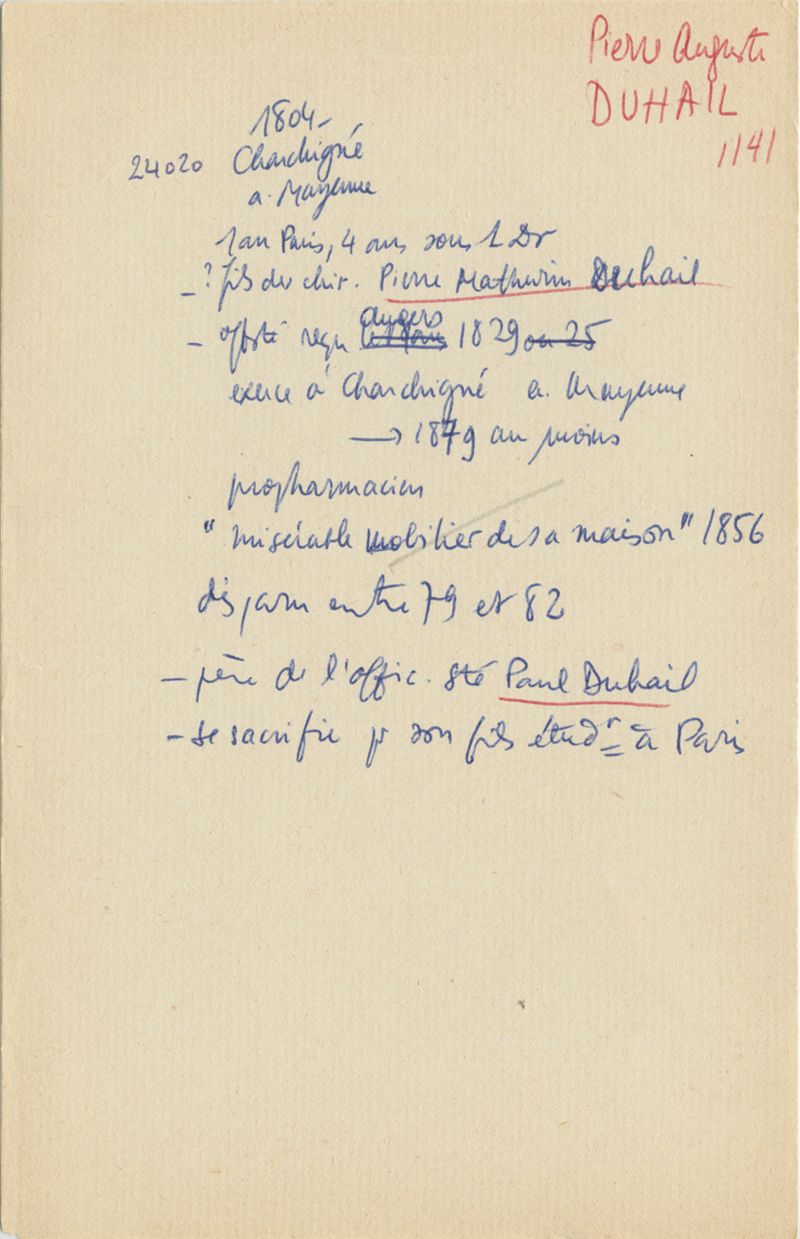 Pierre Auguste
DUHAIL
1141
1804-
24020 Charchigné
a. Mayenne
1 an Paris, 4 ans sous 1 Dr
- ? fils du chir. Pierre Mathurin Duhail
- offsté reçu Angers 1829 ou 25
exerce à Charchigné a. Mayenne
→ 1879 au moins
propharmacien
" misérable mobilier de sa maison" 1856
disparu entre 79 et 82
- père de l'offic. sté Paul Duhail
- se sacrifie pr son fils étudt à Paris